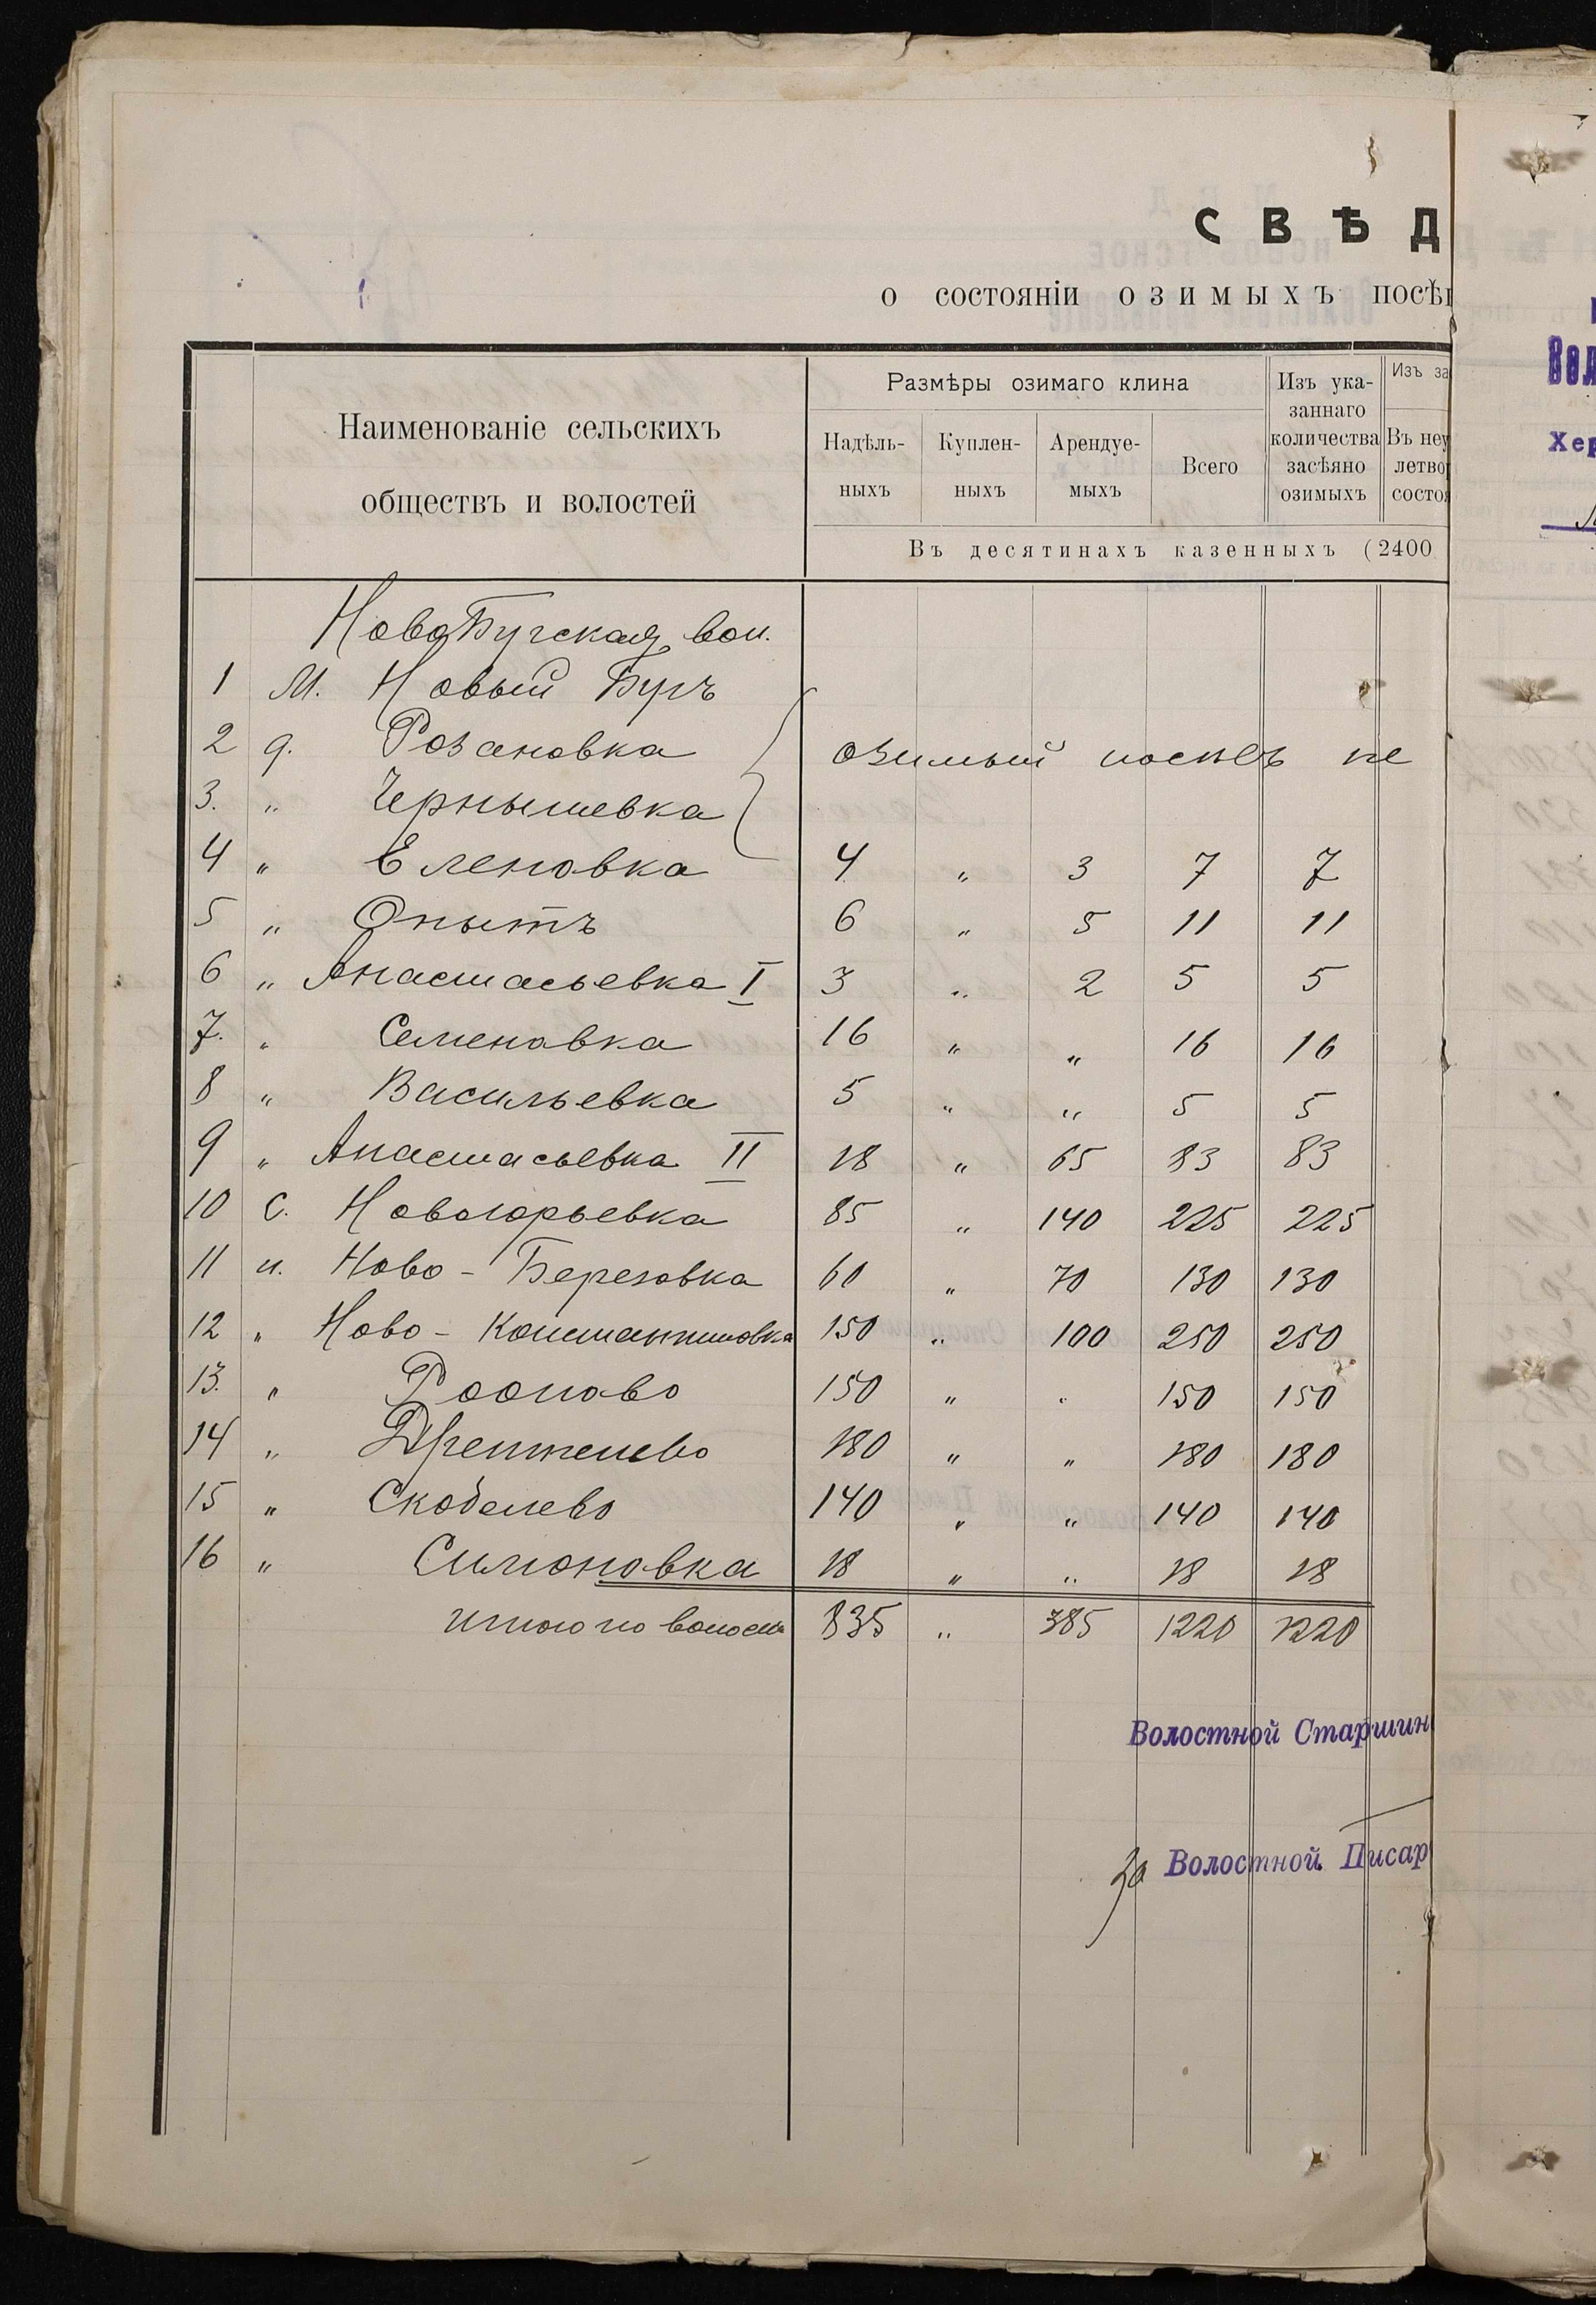 СВѢД
о состояніи озимыхъ посѣ
Наименованіе сельскихъ
обществъ и волостей
Размѣры озимаго клина
Надѣль-
ныхъ
Куплен-
ныхъ
Арендуе-
мыхъ
Всего
Изъ ука-
заннаго
количества
засѣяно
озимыхъ
Изъ за
Въ неу
летво
состо
Въ десятинахъ казенныхъ (2400
НовоБугская вол.
1 м. Новый Бугъ
2 д. Розановка озимый посѣвъ не
3. " Чернышевка
4 " Еленовка 4 " 3 7 7
5 " Опытъ 6 " 5 11 11
6 " Анастасьевка I 3 " 2 5 5
7. " Семеновка 16 " " 16 16
8 " Васильевка 5 " " 5 5
9 " Анастасьевка II 18 " 65 83 83
10 с. Новоюрьевка 85 " 140 225 225
11 п. Ново-Березовка 60 " 70 130 130
12 " Ново-Константиновка 150 " 100 250 250
13. " Роопово 150 " " 150 150
14 " Дрентельево 180 " " 180 180
15 " Скобелево 140 " " 140 140
16 " Симоновка 18 " " 18 18
Итого по волости 835 " 385 1220 1220
Волостной Старшин
За Волостной Писар
Вол
Хер